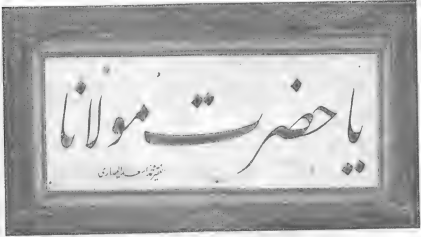 یا حضرت مولانا